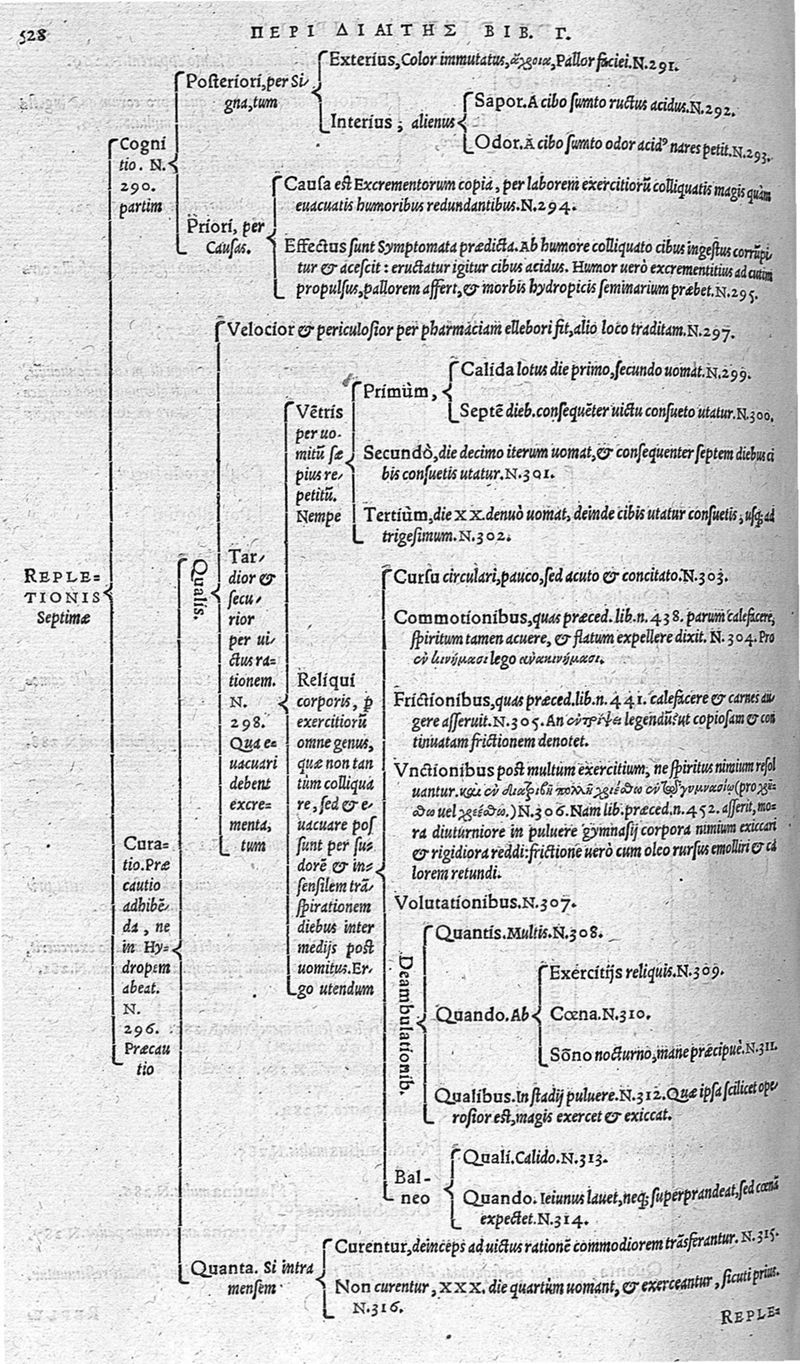 528
ΠΕΡΙ ΔΙΑΙΤΗΣ ΒΙΒ. Γ.
REPLE=
TIONIS
Septimæ
Cogni
tio. N.
290.
partim
Posteriori, per Si-
gna, tum
Exterius, Color immutatus, Pallor faciei. N. 291.
Interius; alienus
Sapor. A cibo sumto ructus acidus. N. 292.
Odor. A cibo sumto odor acidꝰ nares petit. N. 293.
Priori, per
Causas.
Causa est Excrementorum copia, per laborem exercitiorũ colliquatis magis quàm
euacuatis humoribus redundantibus. N. 294.
Effectus sunt Symptomata prædicta. Ab humore colliquato cibus ingestus corrũpi
tur & acescit: eructatur igitur cibus acidus. Humor uerò excrementitius ad cutim
propulsus, pallorem affert, & morbis hydropicis seminarium præbet. N. 295.
Cura=
tio. Præ
cautio
adhibẽ-
da, ne
in Hy-
dropem
abeat.
N.
296.
Præcau
tio
Qualis.
Velocior & periculosior per pharmaciam ellebori fit, alio loco traditam. N. 297.
Tar-
dior &
secu-
rior
per ui-
ctus ra=
tionem.
N.
298.
Qua e-
uacuari
debent
excre-
menta,
tum
Vẽtris
per uo-
mitũ sæ
pius re-
petitũ.
Nempe
Primùm,
Calida lotus die primo, secundo uomat. N. 299.
Septẽ dieb. consequẽter uictu consueto utatur. N. 300.
Secundò, die decimo iterum uomat, & consequenter septem diebus ci
bis consuetis utatur. N. 301.
Tertiùm, die XX. denuò uomat, deinde cibis utatur consuetis, usq; ad
trigesimum. N. 302.
Reliqui
corporis, ꝑ
exercitiorũ
omne genus,
quæ non tan
tùm colliqua
re, sed & e-
uacuare pos
sunt per su-
dorẽ & in=
sensilem trã-
spirationem
diebus inter
medijs post
uomitus. Er-
go utendum
Cursu circulari, pauco, sed acuto & concitato. N. 303.
Commotionibus, quas præced. lib. n. 438. parum calefacere,
spiritum tamen acuere, & flatum expellere dixit. N. 304. Pro
lego
Frictionibus, quas præced. lib. n. 441. calefacere & carnes au
gere asseruit. N. 305. An legendũ: ut copiosam & con
tinuatam frictionem denotet.
Vnctionibus post multum exercitium, ne spiritus nimium resol
uantur. (pro
uel .) N. 306. Nam lib. præced. n. 452. asserit, mo-
ra diuturniore in puluere gymnasij corpora nimium exiccari
& rigidiora reddi: frictione uerò cum oleo rursus emolliri & ca
lorem retundi.
Volutationibus. N. 307.
Deambulationib.
Quantis. Multis. N. 308.
Quando. Ab
Exercitijs reliquis. N. 309.
Cœna. N. 310.
Sõno nocturno, mane præcipuè. N. 311.
Qualibus. In stadij puluere. N. 312. Quæ ipsa scilicet ope-
rosior est, magis exercet & exiccat.
Bal-
neo
Quali. Calido. N. 313.
Quando. Ieiunus lauet, neq; superprandeat, sed cœnã
expectet. N. 314.
Quanta. Si intra
mensem
Curentur, deinceps ad uictus rationẽ commodiorem trãsferantur. N. 315.
Non curentur, XXX. die quartùm uomant, & exerceantur, sicuti prius.
N. 316.
REPLE=